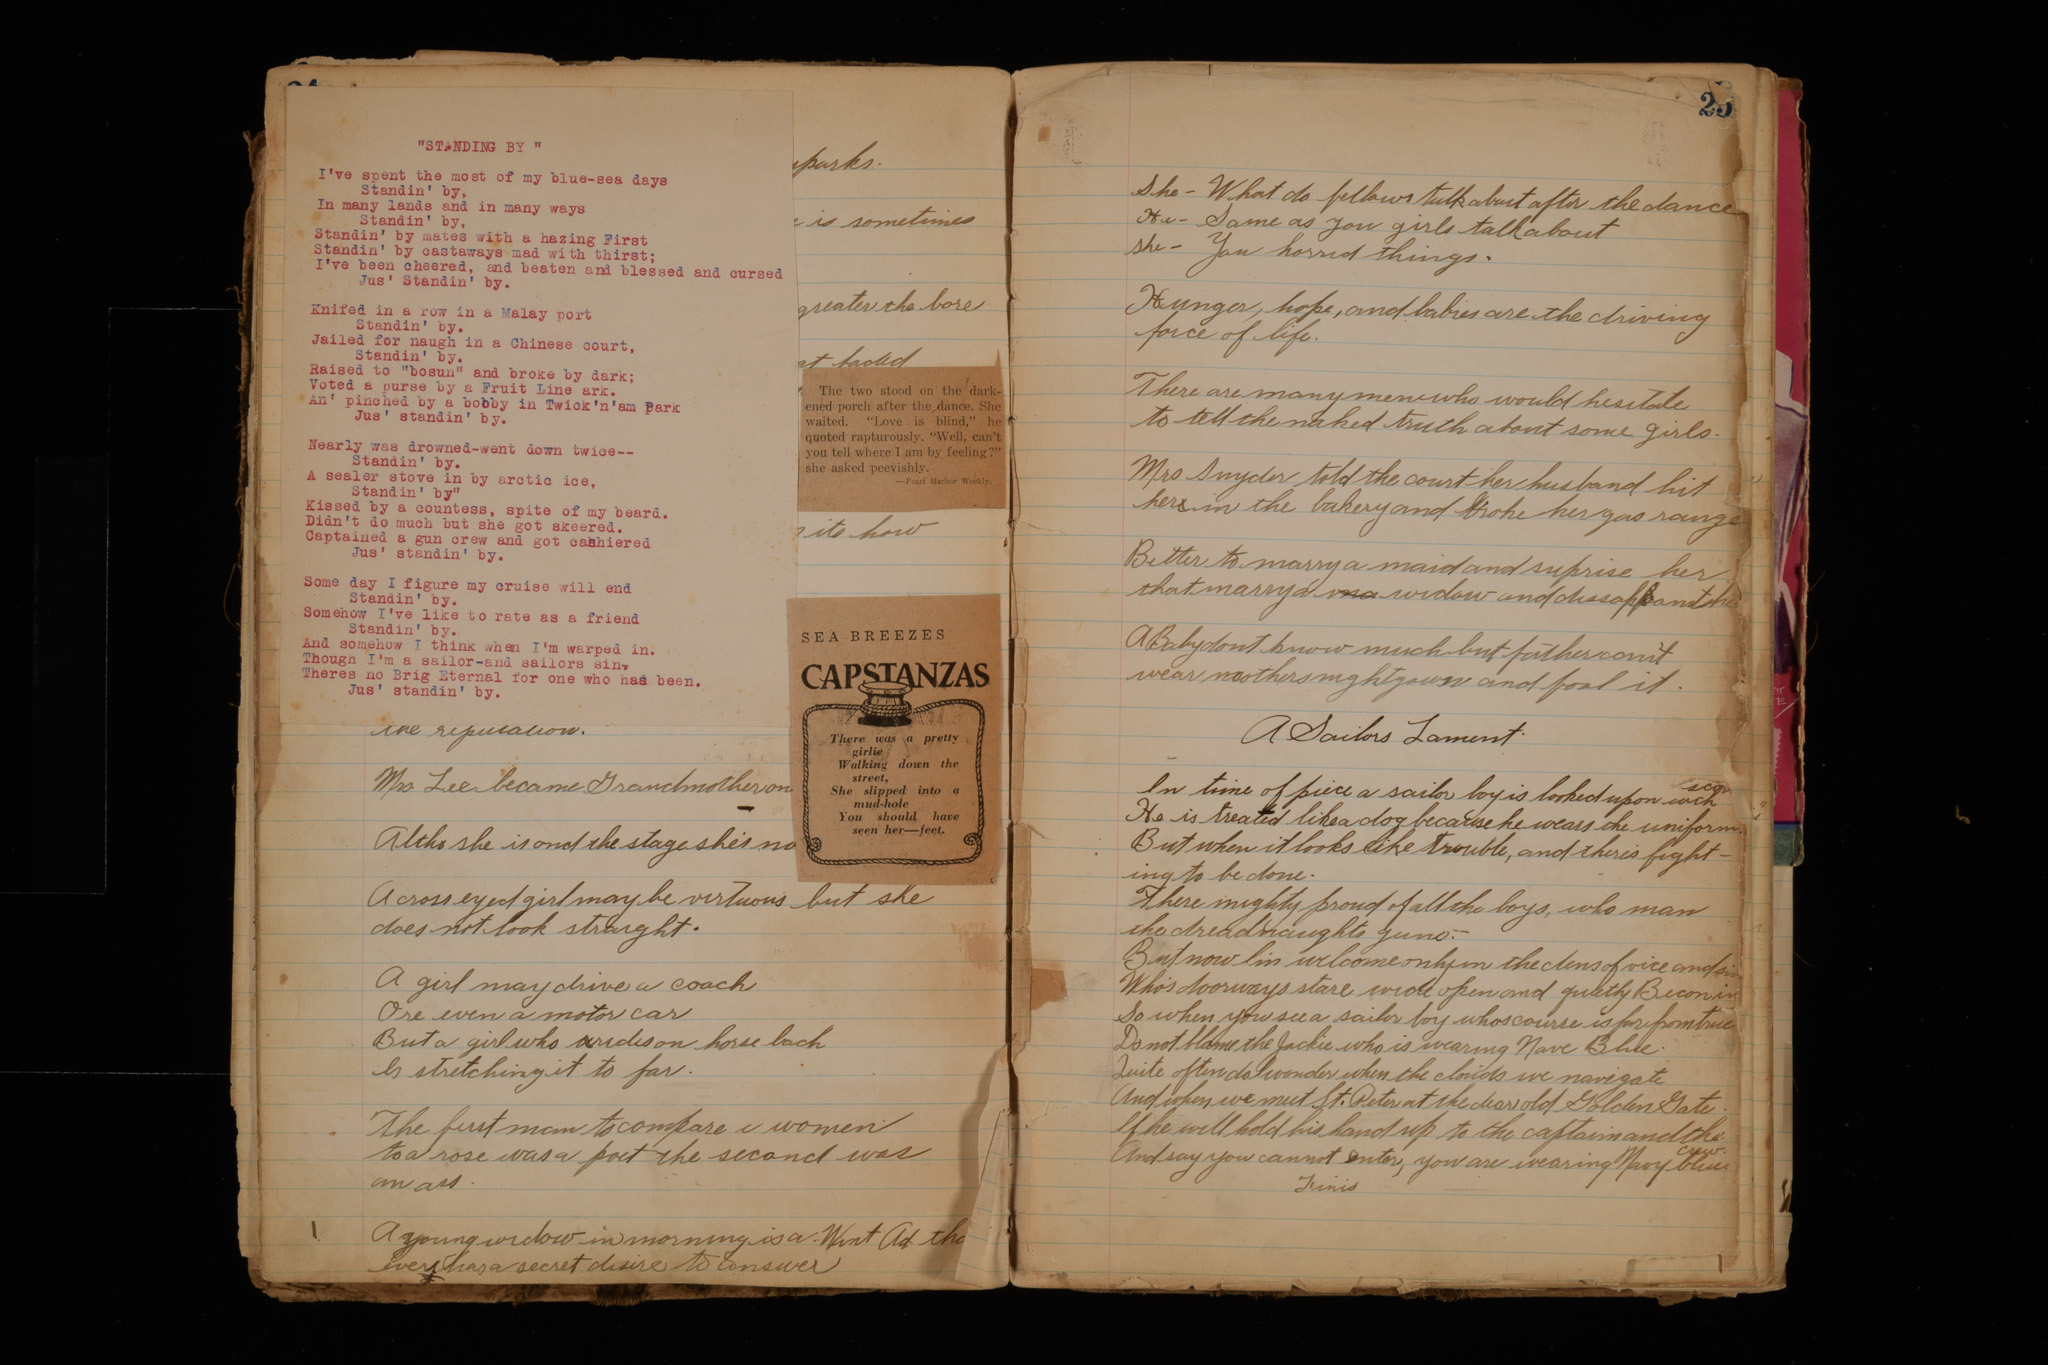 "STANDING BY "
I've spent the most of my blue-sea days
Standin' by,
In many lands and in many ways
Standin' by,
Standin' by mates with a hazing First
Standin' by castaways mad with thirst;
I've been cheered, and beaten and blessed and cursed
Jus' Standin' by.
Knifed in a row in a Malay port
Standin' by.
Jailed for naugh in a Chinese court,
Standin' by.
Raised to "bosun" and broke by dark;
Voted a purse by a Fruit Line ark.
An' pinched by a bobby in Twick'n'am Park
Jus' standin' by.
Nearly was drowned-went down twice--
Standin' by.
A sealer stove in by arctic ice,
Standin' by"
Kissed by a countess, spite of my beard.
Didn't do much but she got skeered.
Captained a gun crew and got cashiered
Jus' standin' by.
Some day I figure my cruise will end
Standin' by.
Somehow I've like to rate as a friend
Standin' by.
And somehow I think when I'm warped in.
Though I'm a sailor-and sailors sin.
Theres no Brig Eternal for one who has been.
Jus' standin' by.
sparks.
is sometimes
greater the bore
The two stood on the dark-
ened porch after the dance. She
waited. "Love is blind," he
quoted rapturously. "Well, can't
you tell where I am by feeling?"
she asked peevishly.
—Pearl Harbor Weekly.
its how
SEA BREEZES
CAPSTANZAS
There was a pretty
girlie
Walking down the
street,
She slipped into a
mud-hole
You should have
seen her—feet.
the reputation.
Mrs. Lee became Grandmother on
Altho she is ond the stage she's no
A cross eyed girl may be virtuous but she
does not look straight.
A girl may drive a coach
Ore even a motor car
But a girl who rides on horse back
Is stretching it to far.
The first man to compare a women
to a rose was a poet the second was
an ass.
A young widow in morning is a Want Ad tha
every has a secret disire to answer
25
She - What do fellows talk about after the dance
He - Same as you girls talk about
she - You horrid things.
Hunger, hope, and babies are the driving
force of life.
There are many men who would hesitate
to tell the naked truth about some girls.
Mrs Snyder told the court her husband hit
her in the bakery and broke her gas range
Better to marry a maid and suprise her
that marry a widow and dissappoint her
A Baby dont know much but father can't
wear mothers nightgown and fool it.
A Sailors Lament.
In time of piece a sailor boy is looked upon with scorn
He is treated like a dog because he wears the uniform.
But when it looks like trouble, and there is fight-
ing to be done.
There mighty proud of all the boys, who man
the dreadnaughts guns.-
But now I'm welcome only in the dens of vice and sin
Who's doorways stare wide open and quietly Becon in
So when you see a sailor boy whos course is far from true
Do not blame the Jackie who is wearing Nave Blue.
Quite often do I wonder when the clouds we navigate
And when we meet St. Peter at the dear old Golden Gate.
If he will hold his hand up to the captain and the crew.
And say you cannot enter, you are wearing Navy blue.
Finis